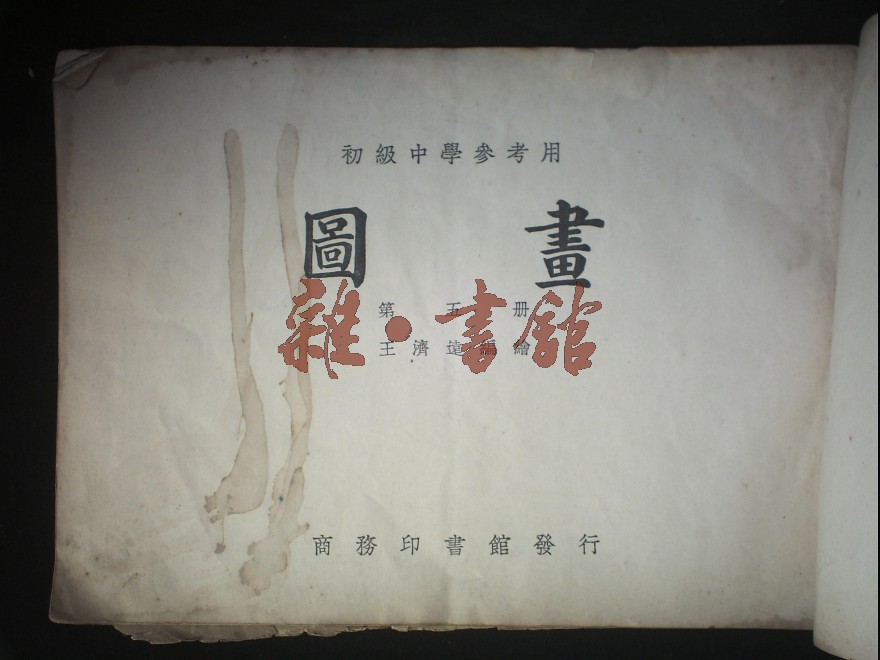 初級中學參考用
圖畫
第五册
王濟遠編繪
雜·書館
商務印書館發行